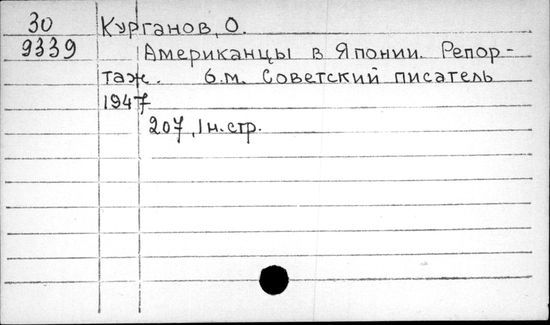 30 Курганов, О.
9339 Американцы в Японии. Репор-
таж. б.м. Советский писатель
1947
207, 1 н. стр.